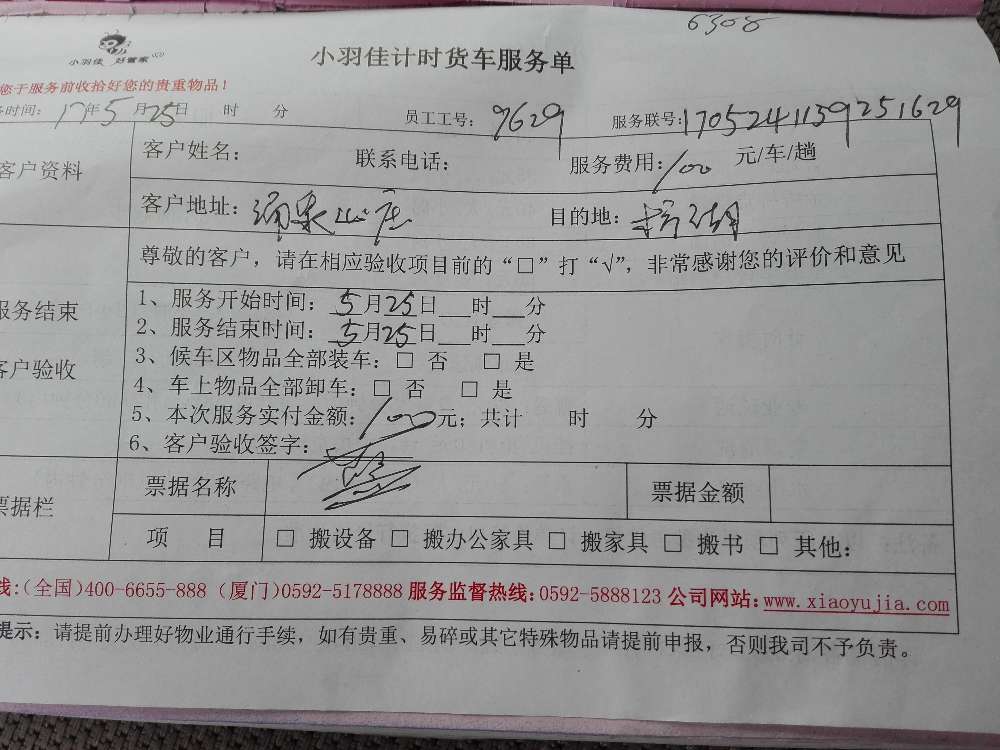 6308
小羽佳 好管家
小羽佳计时货车服务单
您于服务前收拾好您的贵重物品！
务时间：17年5月25日 时 分 员工工号：9629 服务联号：1705241159251629
客户资料
客户姓名： 联系电话： 服务费用：100 元/车/趟
客户地址：涌泉山庄 目的地：梧湖
尊敬的客户，请在相应验收项目前的“□”打“√”，非常感谢您的评价和意见
服务结束
客户验收
1、服务开始时间：5月25日___时___分
2、服务结束时间：5月25日___时___分
3、候车区物品全部装车：□ 否 □ 是
4、车上物品全部卸车：□ 否 □ 是
5、本次服务实付金额：100元；共计 时 分
6、客户验收签字：
票据栏
票据名称 票据金额
项 目 □ 搬设备 □ 搬办公家具 □ 搬家具 □ 搬书 □ 其他：
线：（全国）400-6655-888（厦门）0592-5178888 服务监督热线：0592-5888123 公司网站：www.xiaoyujia.com
提示：请提前办理好物业通行手续，如有贵重、易碎或其它特殊物品请提前申报，否则我司不予负责。